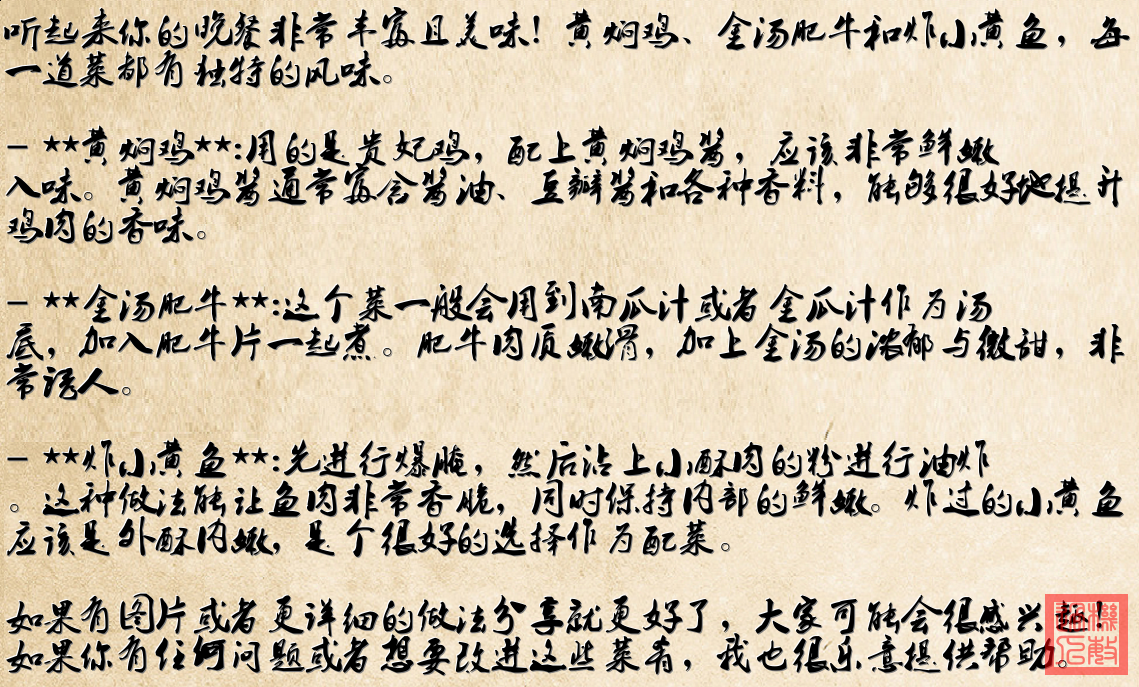 听起来你的晚餐非常丰富且美味！黄焖鸡、金汤肥牛和炸小黄鱼，每
一道菜都有独特的风味。
- **黄焖鸡**:用的是贵妃鸡，配上黄焖鸡酱，应该非常鲜嫩
入味。黄焖鸡酱通常富含酱油、豆瓣酱和各种香料，能够很好地提升
鸡肉的香味。
- **金汤肥牛**:这个菜一般会用到南瓜汁或者金瓜汁作为汤
底，加入肥牛片一起煮。肥牛肉质嫩滑，加上金汤的浓郁与微甜，非
常诱人。
- **炸小黄鱼**:先进行爆腌，然后沾上小酥肉的粉进行油炸
。这种做法能让鱼肉非常香脆，同时保持内部的鲜嫩。炸过的小黄鱼
应该是外酥内嫩，是个很好的选择作为配菜。
如果有图片或者更详细的做法分享就更好了，大家可能会很感兴趣！
如果你有任何问题或者想要改进这些菜肴，我也很乐意提供帮助。